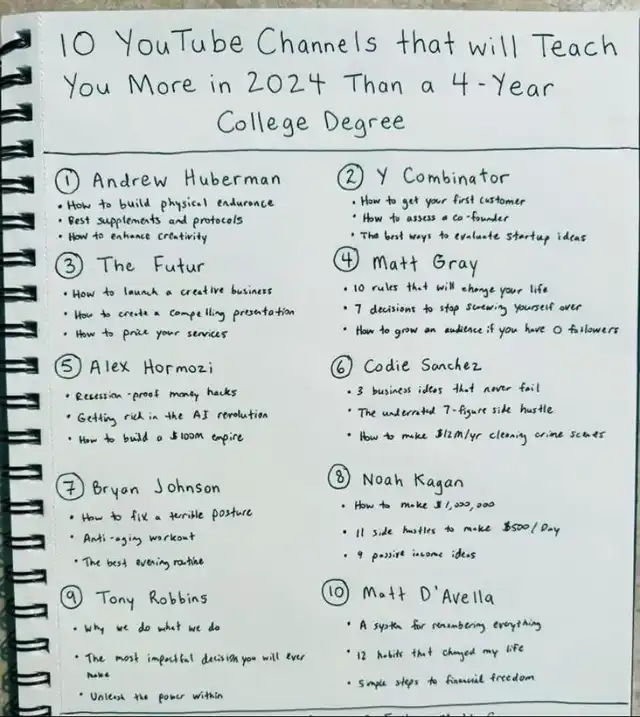 10 YouTube Channels that will Teach
You More in 2024 Than a 4-Year
College Degree
1 Andrew Huberman
• How to build physical endurance
• Best supplements and protocols
• How to enhance creativity
2 Y Combinator
• How to get your first customer
• How to assess a co-founder
• The best ways to evaluate startup ideas
3 The Futur
• How to launch a creative business
• How to create a compelling presentation
• How to price your services
4 Matt Gray
• 10 rules that will change your life
• 7 decisions to stop screwing yourself over
• How to grow an audience if you have 0 followers
5 Alex Hormozi
• Recession-proof money hacks
• Getting rich in the AI revolution
• How to build a $100M empire
6 Codie Sanchez
• 3 business ideas that never fail
• The underrated 7-figure side hustle
• How to make $12M/yr cleaning crime scenes
7 Bryan Johnson
• How to fix a terrible posture
• Anti-aging workout
• The best evening routine
8 Noah Kagan
• How to make $1,000,000
• 11 side hustles to make $500/Day
• 9 passive income ideas
9 Tony Robbins
• Why we do what we do
• The most impactful decision you will ever
make
• Unleash the power within
10 Matt D'Avella
• A system for remembering everything
• 12 habits that changed my life
• Simple steps to financial freedom